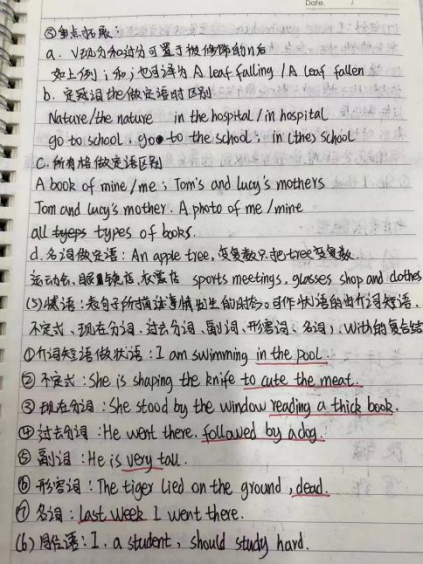 ③重点拓展:
a. V现分和过分可置于被修饰的n后
如上例i和j也可译为 A leaf falling / A leaf fallen
b. 定冠词the做定语时区别
Nature/the nature in the hospital / in hospital
go to school, go to the school; in (the) school
C. 所有格做定语区别
A book of mine/me; Tom's and Lucy's mothers
Tom and Lucy's mother. A photo of me / mine
all types of books.
d. 名词做定语: An apple tree, 变复数只把tree变复数
运动会、眼镜店、衣服店 sports meetings, glasses shop and clothes
(5)状语:表句子所描述事情发生的时 可作状语的由介词短语,
不定式、现在分词、过去分词、副词、形容词、名词、With的复合结
①介词短语做状语: I am swimming in the pool
②不定式: She is shaping the knife to cute the meat.
③现在分词: She stood by the window reading a thick book.
④过去分词: He went there. followed by a dog.
⑤副词: He is very tall.
⑥形容词: The tiger lied on the ground, dead.
⑦名词: last week I went there.
(6)同位语: I. a student, should study hard.